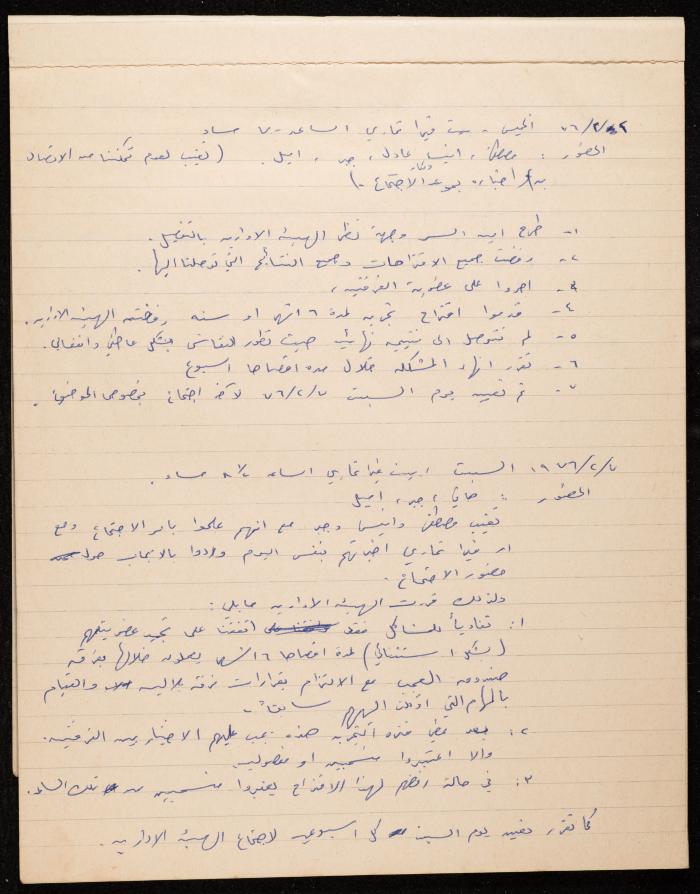 ٧٦/٢/٢ الخميس - بيت فيرا تماري الساعة ٧ مساء
الحضور : مصطفى ، انيس ، عادل ، جبر ، اميل . ( تغيب لعدم تمكننا من الاتصال
به واخباره بموعد الاجتماع . )
١- طرح وجهة نظر الهيئة الادارية بالتفصيل .
٢- رفضت جميع الاقتراحات وجميع النتائج التي توصلنا اليها .
٣- اصروا على عضوية الفرقتين ،
٤- قدموا اقتراح تجربه لمدة ٦ اشهر او سنه رفضته الهيئة الاداريه .
٥- لم نتوصل الى نتيجه نهائيه حيث تطور النقاش بشكل عاطفي وانفعالي .
٦- تقرر انهاء المشكله خلال مده اقصاها اسبوع
٧- تم تعيين يوم السبت ٧٦/٢/٧ لآخر اجتماع بخصوص الموضوع .
١٩٧٦/٢/٧ السبت ، بيت فيرا تماري الساعه مساء .
الحضور : ، جبر ، اميل
تغيب مصطفى وانيس مع انهم علموا بامر الاجتماع ومع
ان فيرا تماري اخبرتهم بنفس اليوم وردوا بالايجاب حول
حضور الاجتماع .
ولذلك قررت الهيئة الادارية مايلي :
١: تفادياً للمشاكل فقد اتفقنا على تجميد عضويتهم
( بشكل استثنائي ) لمدة اقصاها ٦ اشهر يعملون خلالها بفرقة
صندوق العجب مع الالتزام بقرارات فرقة بلالين والقيام
بالمهام التي اوكلت اليهم سابقاً -
٢: بعد مضي فترة التجربه هذه يجب عليهم الاختيار بين الفرقتين .
والا اعتبروا منسحبين او مفصولين
٣: في حالة رفضهم لهذا الاقتراح يعتبروا منسحبين من تلك الساعه .
كما تقرر تعيين يوم السبت كل اسبوع لاجتماع الهيئة الاداريه .